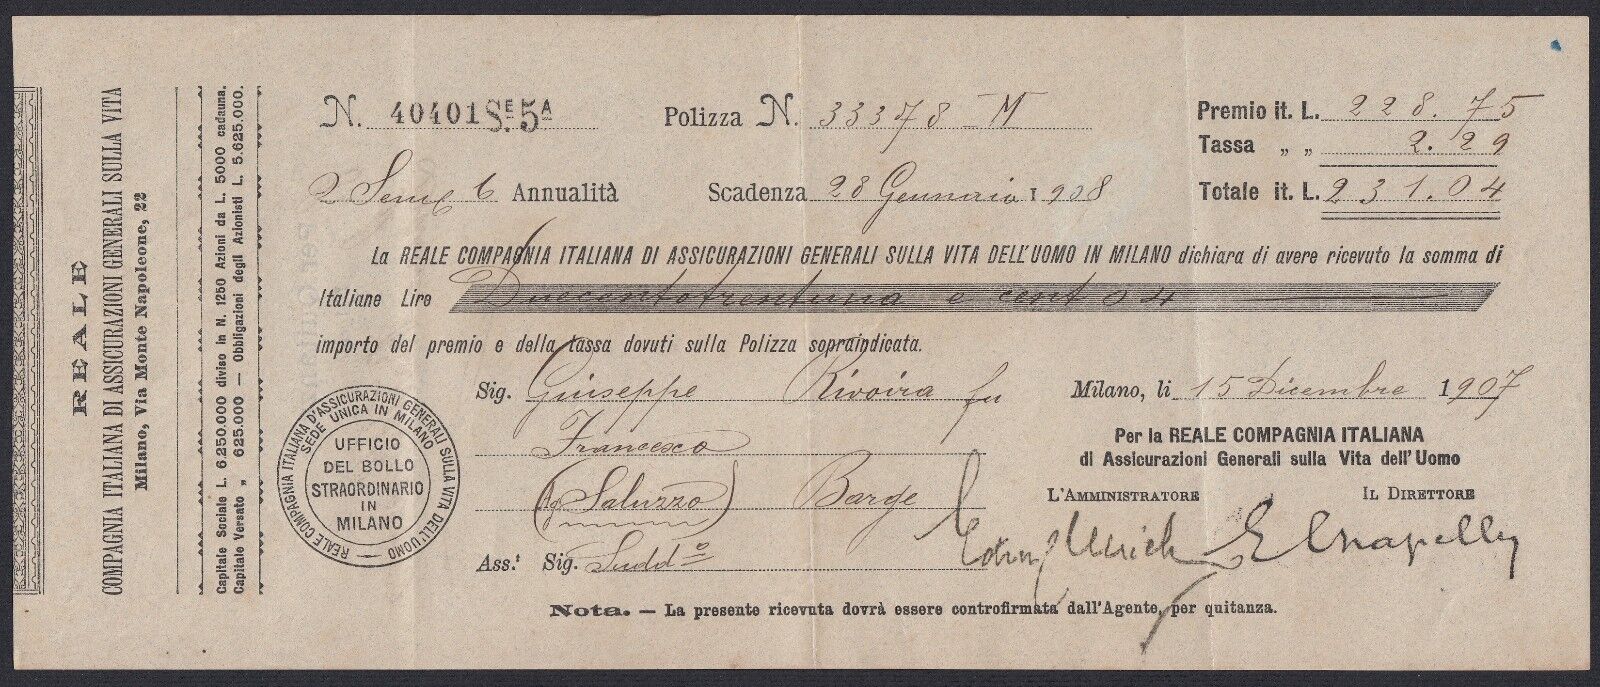 REALE
COMPAGNIA ITALIANA DI ASSICURAZIONI GENERALI SULLA VITA
Milano, Via Monte Napoleone, 22
Capitale Sociale L. 6.250.000 diviso in N. 1250 Azioni da L. 5000 cadauna.
Capitale Versato „ 625.000 — Obbligazioni degli Azionisti L. 5.625.000.
N. 40401 SE. 5A Polizza N. 33378 - M Premio it. L. 228.75
Tassa „ „ 2.29
2 Sem 6 Annualità Scadenza 28 Gennaio 1908 Totale it. L. 231.04
La REALE COMPAGNIA ITALIANA DI ASSICURAZIONI GENERALI SULLA VITA DELL'UOMO IN MILANO dichiara di avere ricevuto la somma di
Italiane Lire Duecentotrentuna e cent 04
importo del premio e della tassa dovuti sulla Polizza sopraindicata.
Sig. Giuseppe Rivoira fu Milano, li 15 Dicembre 1907
Francesco
(Ag Saluzzo) Barge
Ass.t Sig. Suddo
Per la REALE COMPAGNIA ITALIANA
di Assicurazioni Generali sulla Vita dell'Uomo
L'AMMINISTRATORE IL DIRETTORE
REALE COMPAGNIA ITALIANA D'ASSICURAZIONI GENERALI SULLA VITA DELL'UOMO
SEDE UNICA IN MILANO
UFFICIO
DEL BOLLO
STRAORDINARIO
IN
MILANO
Nota. — La presente ricevuta dovrà essere controfirmata dall'Agente, per quitanza.